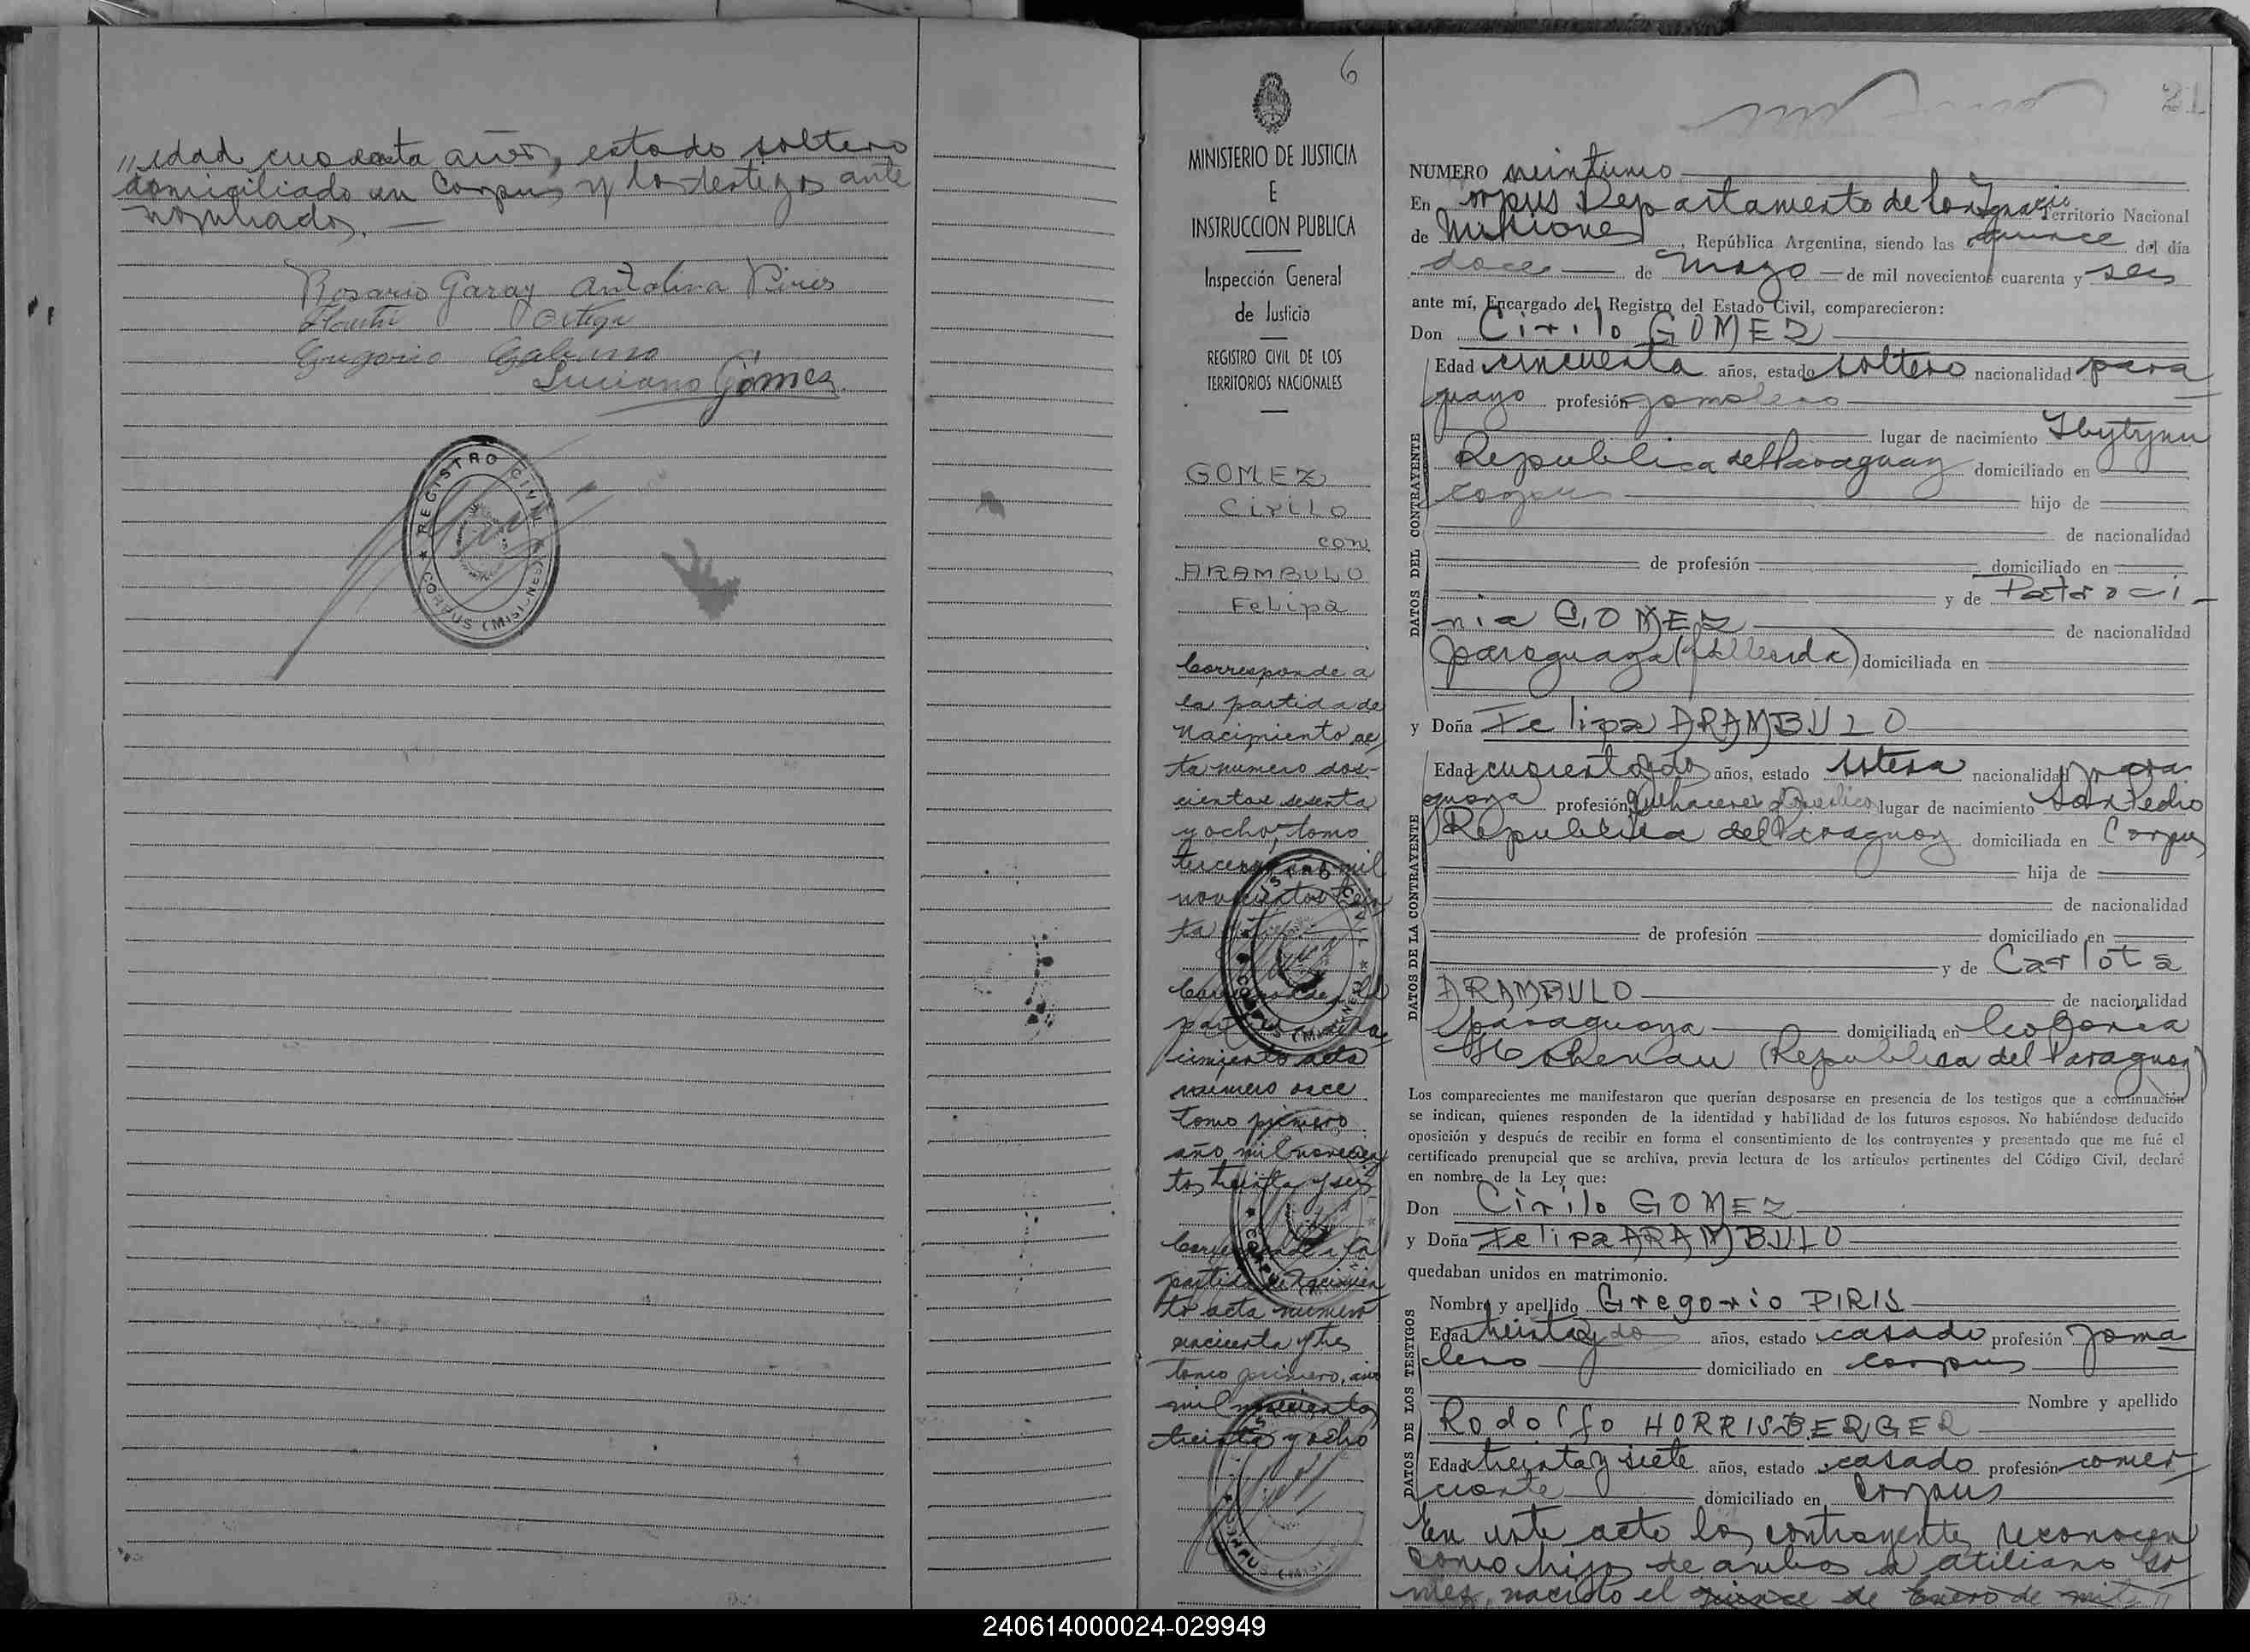 " edad cuarenta años, estado soltero
domiciliado en Corpus y los testigos ante
nombrados. —
Rosario Garay Antolina Piris
Ortega
Gregorio Galeano
Luciano Gómez
REGISTRO CIVIL
CORPUS (MISIONES)
6
MINISTERIO DE JUSTICIA
E
INSTRUCCION PUBLICA
Inspección General
de Justicia
REGISTRO CIVIL DE LOS
TERRITORIOS NACIONALES
GOMEZ
Cirilo
con
ARAMBULO
Felipa
Corresponde a
la partida de
Nacimiento ac
ta numero dos-
cientos sesenta
y ocho, tomo
tercero, año mil
novecientos trein
ta
Corresponde a la
partida de Na
cimiento acta
numero once
tomo primero
año mil novecien
tos treinta y seis
Corresponde a la
partida de Nacimien
to acta numero
cincuenta y tres
tomo primero, año
mil novecientos
treinta y ocho
21
NUMERO veintiuno
En Corpus Departamento de San Ignacio Territorio Nacional
de Misiones, República Argentina, siendo las quince del día
doce — de Mayo — de mil novecientos cuarenta y seis
ante mí, Encargado del Registro del Estado Civil, comparecieron:
Don Cirilo GOMEZ
DATOS DEL CONTRAYENTE
Edad cincuenta años, estado soltero nacionalidad para
guayo profesión jornalero
lugar de nacimiento Ibytymi
Republica del Paraguay domiciliado en
Corpus hijo de
de nacionalidad
de profesión domiciliado en
y de Patroci-
nia GOMEZ de nacionalidad
paraguaya (fallecida) domiciliada en
y Doña Felipa ARAMBULO
DATOS DE LA CONTRAYENTE
Edad cuarentaydos años, estado soltera nacionalidad para
guaya profesión Quehaceres Domesticos lugar de nacimiento San Pedro
Republica del Paraguay domiciliada en Corpus
hija de
de nacionalidad
de profesión domiciliado en
y de Carlota
ARAMBULO de nacionalidad
paraguaya domiciliada en Colonia
Hohenau (Republica del Paraguay)
Los comparecientes me manifestaron que querían desposarse en presencia de los testigos que a continuación
se indican, quienes responden de la identidad y habilidad de los futuros esposos. No habiéndose deducido
oposición y después de recibir en forma el consentimiento de los contrayentes y presentado que me fué el
certificado prenupcial que se archiva, previa lectura de los artículos pertinentes del Código Civil, declaré
en nombre de la Ley que:
Don Cirilo GOMEZ
y Doña Felipa ARAMBULO
quedaban unidos en matrimonio.
DATOS DE LOS TESTIGOS
Nombre y apellido Gregorio PIRIS
Edad treintaydos años, estado casado profesión jorna
lero domiciliado en Corpus
Nombre y apellido
Rodolfo HORRISBERGER
Edad treinta y siete años, estado casado profesión comer
ciante domiciliado en Corpus
En este acto los contrayentes reconocen
como hijos de ambos a Atiliano Go
mez, nacido el quince de Enero de mil
240614000024-029949